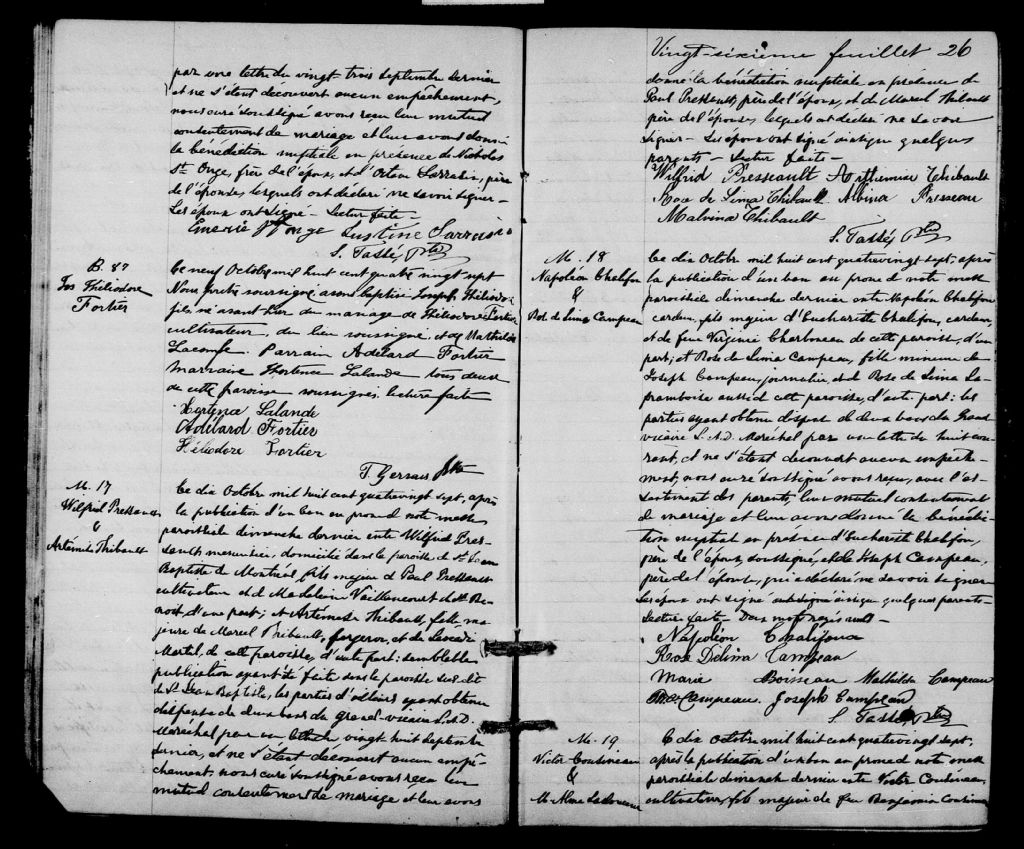 par une lettre du vingt trois septembre dernier
et ne s'étant découvert aucun empêchement,
nous curé soussigné avons reçu leur mutuel
consentement de mariage et leur avons donné
la bénédiction nuptiale en présence de Nicholas
St. Onge, frère de l'époux, et d'Octave Sarrasin, père
de l'épouse, lesquels ont déclaré ne savoir signer—
Les époux ont signé— Lecture faite—
Emerie St Onge Justine Sarrasin
S. Tassé, Ptre
B. 87
Jos Héliodore
Fortier
Ce neuf Octobre mil huit cent quatre vingt sept
Nous prêtre soussigné avons baptisé Joseph Héliodore
fils né avant hier du mariage de Héliodore Fortier
cultivateur, du lieu soussigné, et de Mathilda
Lacombe. Parrain Adélard Fortier
Marraine Hortence Lalande tous deux
de cette paroisse soussignés lecture faite
Hortena Lalande
Adélard Fortier
Héliodore Fortier
T. Gervais Ptre
M. 17
Wilfrid Presseault
&
Artémise Thibault
Ce dix Octobre mil huit cent quatrevingt sept, après
la publication d'un ban au prône de notre messe
paroissiale dimanche dernier entre Wilfrid Pres-
seault menuisier, domicilié dans la paroisse de St Jean
Baptiste de Montréal, fils majeur de Paul Presseault
cultivateur et de Madeleine Vaillancourt de St Be-
noit d'une part; et Artémise Thibault, fille ma-
jeure de Marcel Thibault, forgeron, et de Leocadie
Martel, de cette paroisse, d'autre part: semblable
publication ayant été faite dans la paroisse susdite
de St Jean Baptiste, les parties d'ailleurs ayant obtenu
dispense de deux bans du grand-vicaire L.A.D.
Maréchal par une lettre vingt huit Septembre
dernier, et ne s'étant découvert aucun empê-
chement, nous curé soussigné avons reçu leur
mutuel consentement de mariage et leur avons
Vingt-sixième feuillet 26
donné la bénédiction nuptiale en présence de
Paul Presseault, père de l'époux, et de Marcel Thibault
père de l'épouse, lesquels ont déclaré ne savoir
signer— Les époux ont signé ainsi que quelques
parents— Lecture faite—
Wilfrid Presseault Artthemise Thibault
Rose de Lima Thibault Albina Presseau
Malvina Thibault
S. Tassé, Ptre
M. 18
Napoléon Chalifou
&
Rose de Lima Campeau
Ce dix Octobre mil huit cent quatrevingt sept, après
la publication d'un ban au prône de notre messe
paroissiale dimanche dernier entre Napoléon Chalifou
cardeur, fils majeur d'Euchariste Chalifou, cardeur,
et de feue Virginie Charboneau de cette paroisse, d'une
part; et Rose de Lima Campeau, fille mineure de
Joseph Campeau, journalier, et de Rose de Lima La-
framboise aussi de cette paroisse, d'autre part: les
parties ayant obtenu dispense de deux bans du Grand
vicaire L.A.D. Maréchal par une lettre du huit cou-
rant, et ne s'étant découvert aucun empêche-
ment, nous curé soussigné avons reçu, avec l'as-
sentiment des parents, leur mutuel consentement
de mariage et leur avons donné la bénédic-
tion nuptiale en présence d'Euchariste Chalifou,
père de l'époux, soussigné, et de Joseph Campeau,
père de l'épouse, qui a déclaré ne savoir signer
Les époux ont signé ainsi que quelques parents—
Lecture faite— Deux mots rayés nuls—
Napoléon Chalifoux
Rose Délima Campeau
Marie Boisseau Mathilda Campeau
Campeau. Joseph Campeau
S. Tassé, Ptre
M. 19
Victor Cousineau
&
M. Alma Ladouceur
Ce dix Octobre mil huit cent quatrevingt sept,
après la publication d'un ban au prône de notre messe
paroissiale dimanche dernier entre Victor Cousineau,
cultivateur, fils majeur de feu Benjamin Cousineau